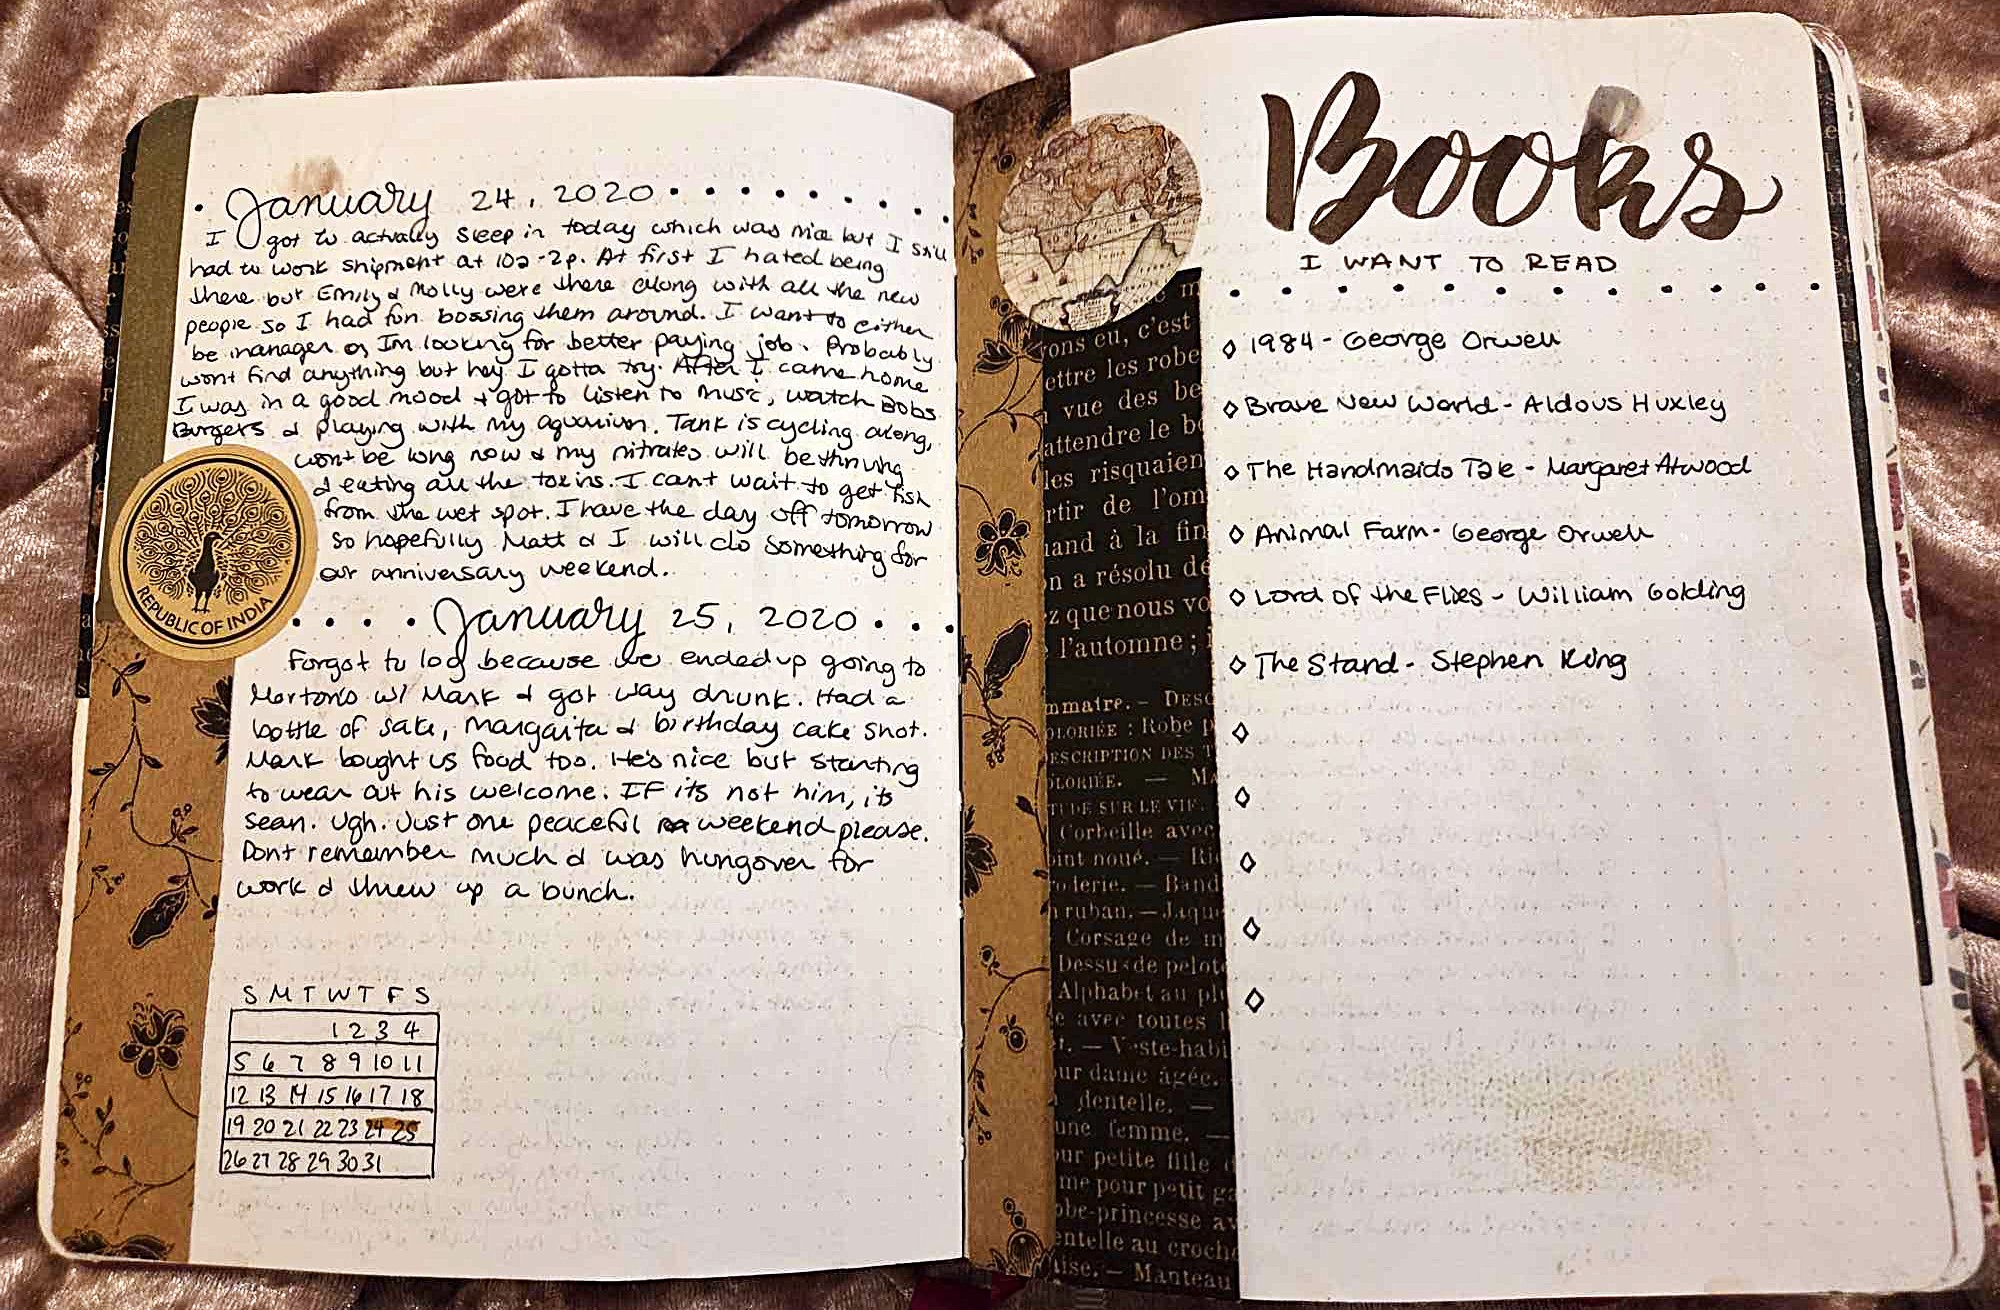 January 24, 2020
I got to actually sleep in today which was nice but I still
had to work shipment at 10a-2p. At first I hated being
there but Emily & Molly were there along with all the new
people so I had fun bossing them around. I want to either
be manager or Im looking for better paying job. Probably
wont find anything but hey I gotta try. After I came home
I was in a good mood & got to listen to music, watch Bobs
Burgers & playing with my aquarium. Tank is cycling along,
wont be long now & my nitrates will be thriving
& eating all the toxins. I cant wait to get fish
from the wet spot. I have the day off tomorrow
so hopefully Matt & I will do something for
our anniversary weekend.
REPUBLIC OF INDIA
January 25, 2020
Forgot to log because we ended up going to
Morton's w/ Mark & got way drunk. Had a
bottle of sake, margarita & birthday cake shot.
Mark bought us food too. He's nice but starting
to wear out his welcome. If its not him, its
sean. Ugh. Just one peaceful weekend please.
Dont remember much & was hungover for
work & threw up a bunch.
S M T W T F S
1 2 3 4
5 6 7 8 9 10 11
12 13 14 15 16 17 18
19 20 21 22 23 24 25
26 27 28 29 30 31
Books
I WANT TO READ
1984 - George Orwell
Brave New World - Aldous Huxley
The Handmaids Tale - Margaret Atwood
Animal Farm - George Orwell
Lord of the Flies - William Golding
The Stand - Stephen King
vons eu, c'est
ettre les robe
vue des be
attendre le bo
les risquaien
rtir de l'om
and à la fin
n a résolu de
z que nous vo
l'automne ;
mmaire. — DESC
LORIÉE : Robe p
ESCRIPTION DES T
LORIÉE. — MA
TUDE SUR LE VIF.
Corbeille avec
int noué. — Ri
roderie. — Band
ruban. — Jaqu
Corsage de m
Dessus de pelot
Alphabet au pl
e avec toutes l
t. — Veste-habi
ur dame âgée.
dentelle. —
une femme. —
ur petite fille
me pour petit ga
obe-princesse av
entelle au croch
aise. — Manteau